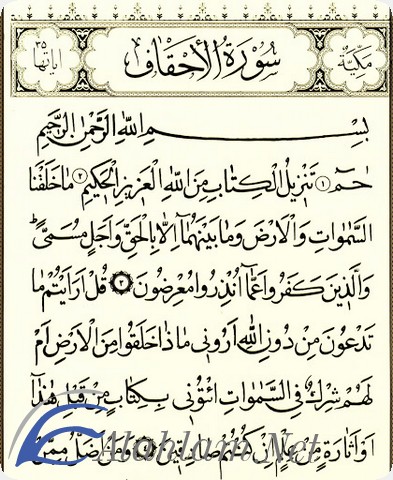 مكية
سورة الأحقاف
اياتها ٣٥
بسم الله الرحمن الرحيم
حٰمٓ ۝١ تَنْزِيلُ الْكِتَابِ مِنَ اللّٰهِ الْعَزِيزِ الْحَكِيمِ ۝٢ مَا خَلَقْنَا
السَّمٰوَاتِ وَالْاَرْضَ وَمَا بَيْنَهُمَآ اِلَّا بِالْحَقِّ وَاَجَلٍ مُسَمًّىۜ
وَالَّذِينَ كَفَرُوا عَمَّآ اُنْذِرُوا مُعْرِضُونَ ۝٣ قُلْ اَرَاَيْتُمْ مَا
تَدْعُونَ مِنْ دُونِ اللّٰهِ اَرُونِي مَاذَا خَلَقُوا مِنَ الْاَرْضِ اَمْ
لَهُمْ شِرْكٌ فِي السَّمٰوَاتِ ائْتُونِي بِكِتَابٍ مِنْ قَبْلِ هٰذَآ
اَوْ اَثَارَةٍ مِنْ عِلْمٍ اِنْ كُنْتُمْ صَادِقِينَ ۝٤ وَمَنْ اَضَلُّ مِمَّنْ
Alahlam.Net